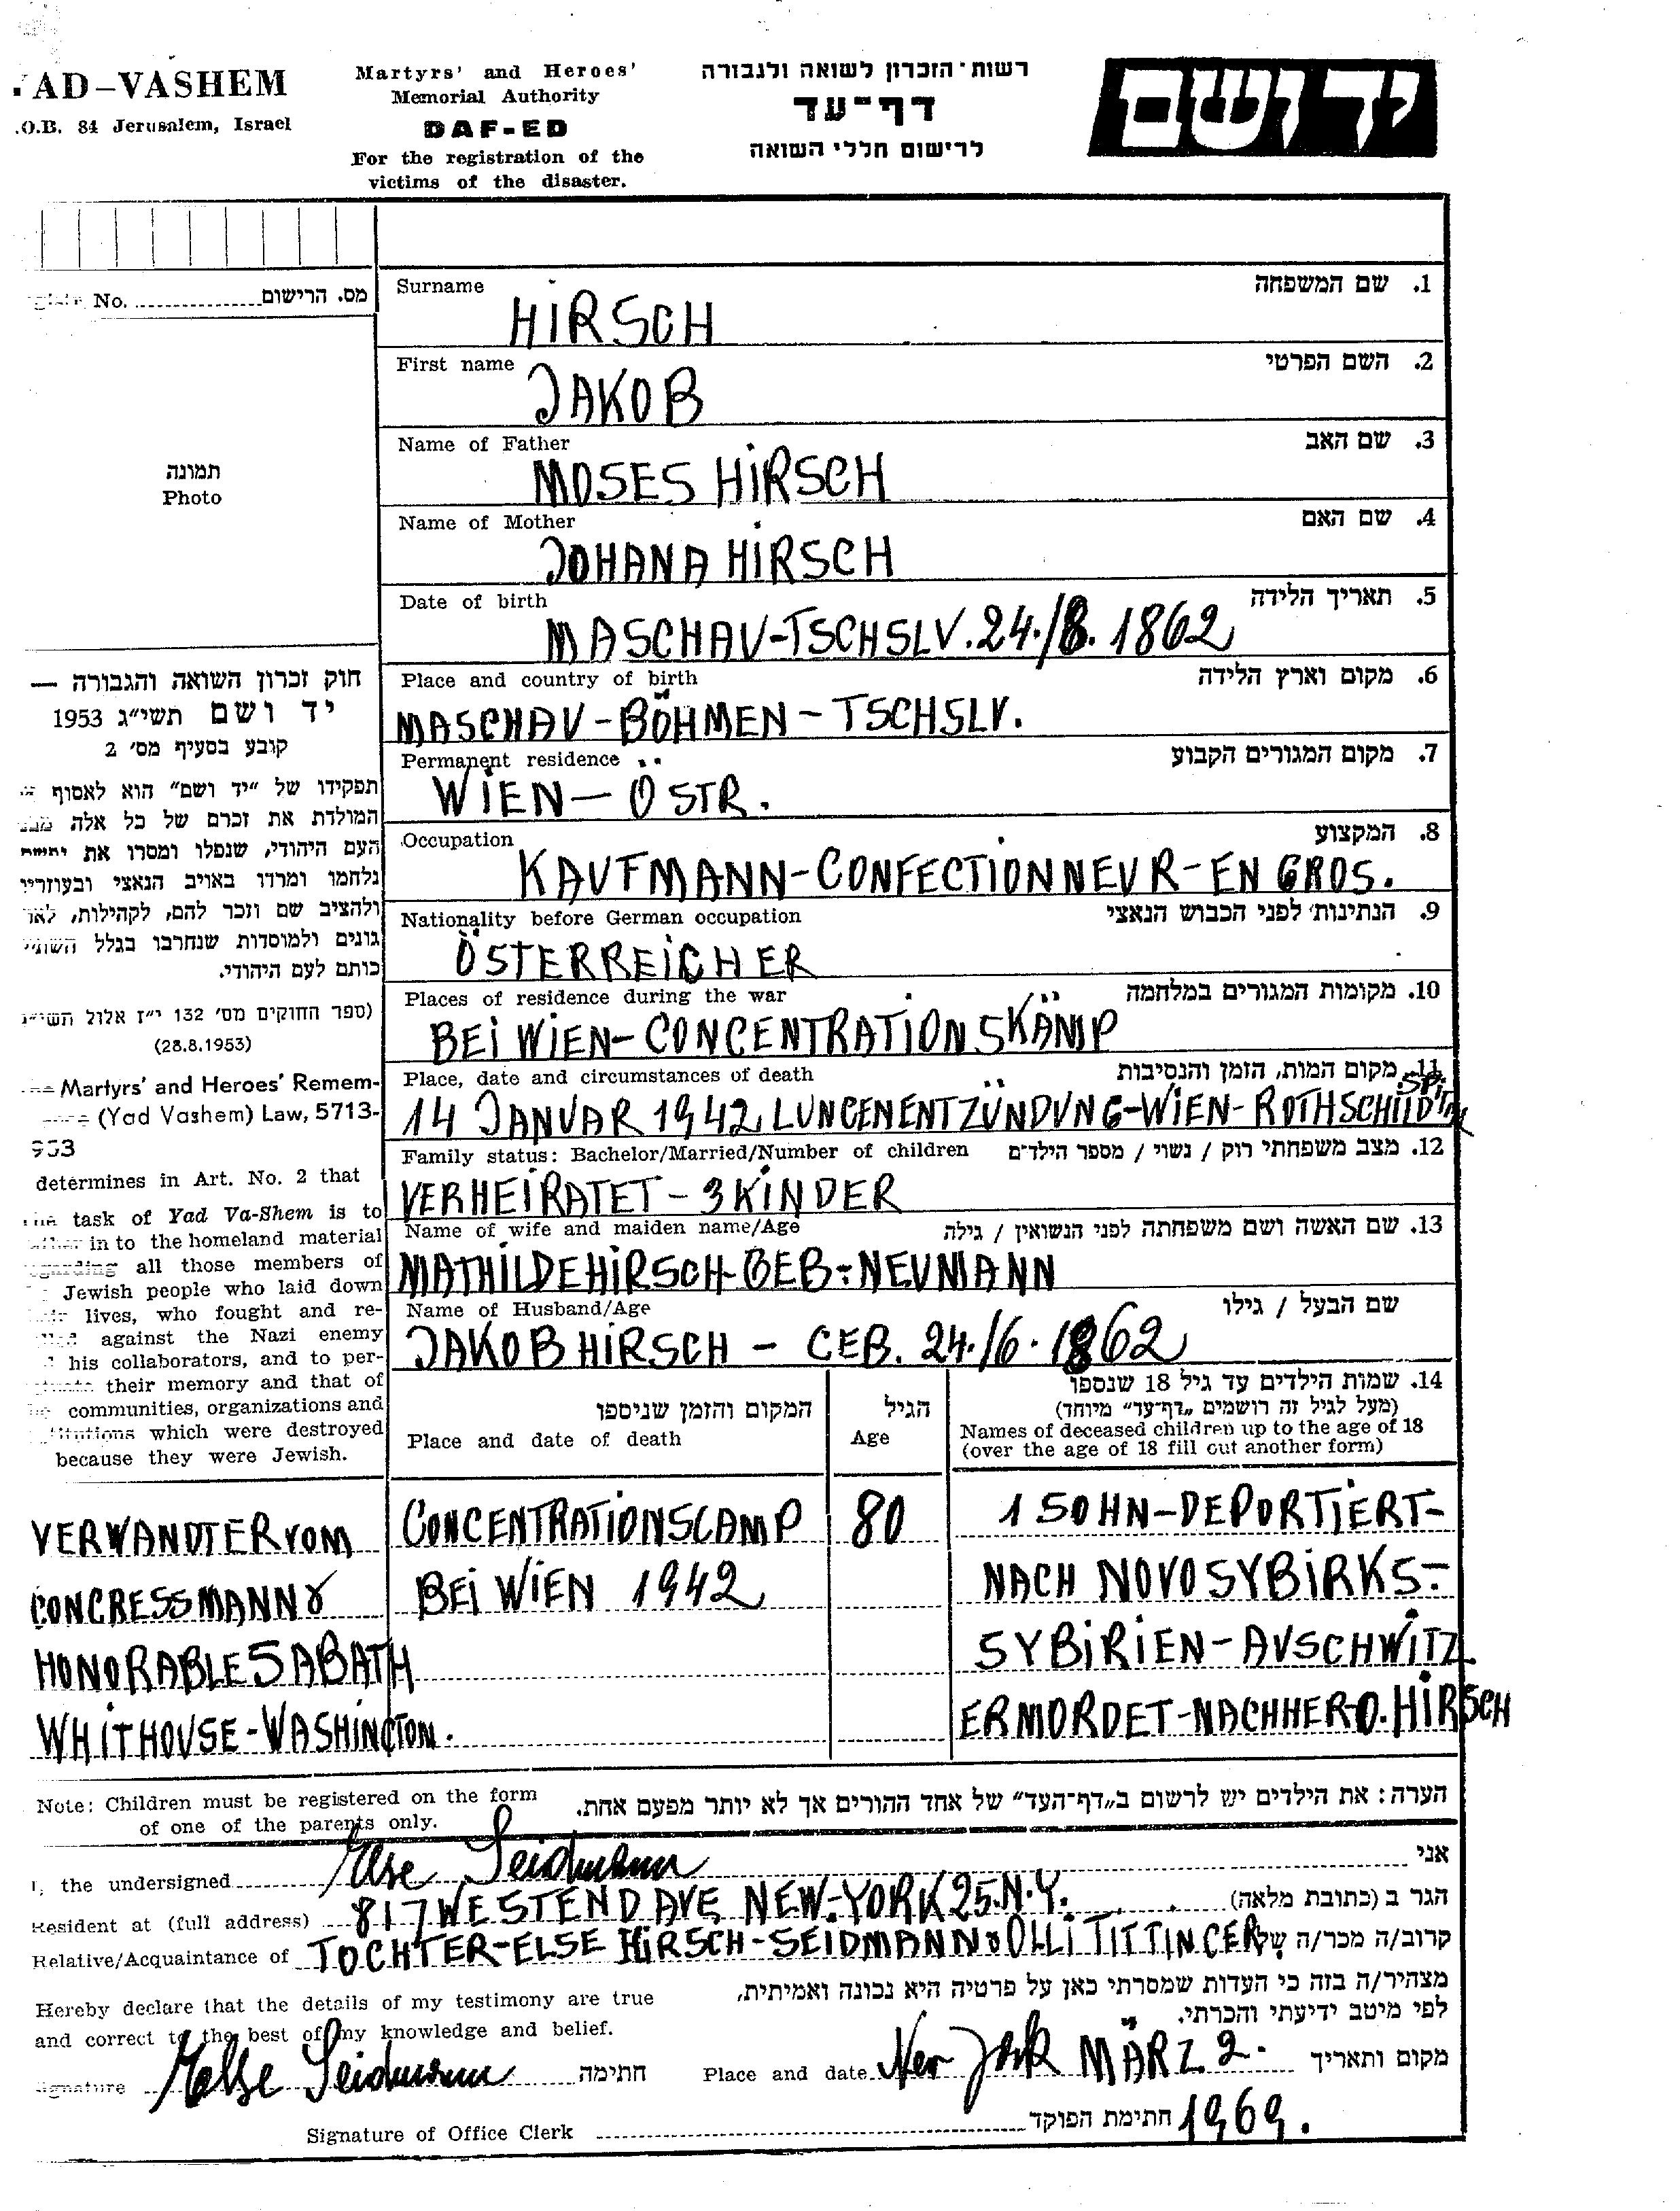 AD-VASHEM
.O.B. 84 Jerusalem, Israel
Martyrs' and Heroes'
Memorial Authority
DAF-ED
For the registration of the
victims of the disaster.
רשות הזכרון לשואה ולגבורה
דף-עד
לרישום חללי השואה
יד ושם
No. מס. הרישום
תמונה
Photo
חוק זכרון השואה והגבורה —
יד ושם תשי"ג 1953
קובע בסעיף מס' 2
תפקידו של "יד ושם" הוא לאסוף
המולדת את זכרם של כל אלה
העם היהודי, שנפלו ומסרו את
נלחמו ומרדו באויב הנאצי
ולהציב שם וזכר להם, לקהילות,
גונים ולמוסדות שנחרבו בגלל
כותם לעם היהודי.
(ספר החוקים מס' 132 י"ז אלול
(28.8.1953)
Martyrs' and Heroes' Remem-
(Yad Vashem) Law, 5713-
953
determines in Art. No. 2 that
task of Yad Va-Shem is to
in to the homeland material
all those members of
Jewish people who laid down
lives, who fought and re-
against the Nazi enemy
his collaborators, and to per-
their memory and that of
communities, organizations and
which were destroyed
because they were Jewish.
Surname 1. שם המשפחה
HIRSCH
First name 2. השם הפרטי
JAKOB
Name of Father 3. שם האב
MOSES HIRSCH
Name of Mother 4. שם האם
JOHANA HIRSCH
Date of birth 5. תאריך הלידה
MASCHAV-TSCHSLV. 24./8. 1862
Place and country of birth 6. מקום וארץ הלידה
MASCHAV-BÖHMEN-TSCHSLV.
Permanent residence 7. מקום המגורים הקבוע
WIEN-ÖSTR.
Occupation 8. המקצוע
KAUFMANN-CONFECTIONNEUR-EN GROS.
Nationality before German occupation 9. הנתינות לפני הכבוש הנאצי
ÖSTERREICHER
Places of residence during the war 10. מקומות המגורים במלחמה
BEI WIEN-CONCENTRATIONSKÄMP
Place, date and circumstances of death 11. מקום המות, הזמן והנסיבות
14 JANUAR 1942 LUNGENENTZÜNDUNG-WIEN-ROTHSCHILD
Family status: Bachelor/Married/Number of children 12. מצב משפחתי רוק / נשוי / מספר הילדים
VERHEIRATET-3 KINDER
Name of wife and maiden name/Age 13. שם האשה ושם משפחתה לפני הנשואין / גילה
MATHILDE HIRSCH-GEB-NEUMANN
Name of Husband/Age שם הבעל / גילו
JAKOB HIRSCH - GEB. 24./6. 1862
14. שמות הילדים עד גיל 18 שנספו
(מעל לגיל זה רושמים „דף-עד" מיוחד)
Names of deceased children up to the age of 18
(over the age of 18 fill out another form)
הגיל
Age
המקום והזמן שניספו
Place and date of death
VERWANDTER VOM CONCENTRATIONSCAMP 80 1 SOHN-DEPORTIERT-
CONGRESSMANN BEI WIEN 1942 NACH NOVOSYBIRKS-
HONORABLE SABATH SYBIRIEN-AUSCHWITZ
WHITHOUSE-WASHINGTON. ERMORDET-NACHHER-O.HIRSCH
Note: Children must be registered on the form
of one of the parents only.
הערה: את הילדים יש לרשום ב„דף-העד" של אחד ההורים אך לא יותר מפעם אחת.
I, the undersigned Else Seidmann אני
Resident at (full address) 817 WESTEND AVE NEW-YORK 25.N.Y. הגר ב (כתובת מלאה)
Relative/Acquaintance of TOCHTER-ELSE HIRSCH-SEIDMANN OLLI TITTINGER קרוב/ה מכר/ה של
Hereby declare that the details of my testimony are true
and correct to the best of my knowledge and belief.
מצהיר/ה בזה כי העדות שמסרתי כאן על פרטיה היא נכונה ואמיתית,
לפי מיטב ידיעתי והכרתי.
Signature Else Seidmann חתימה Place and date New York MÄRZ 2. מקום ותאריך
1969.
Signature of Office Clerk חתימת הפוקד